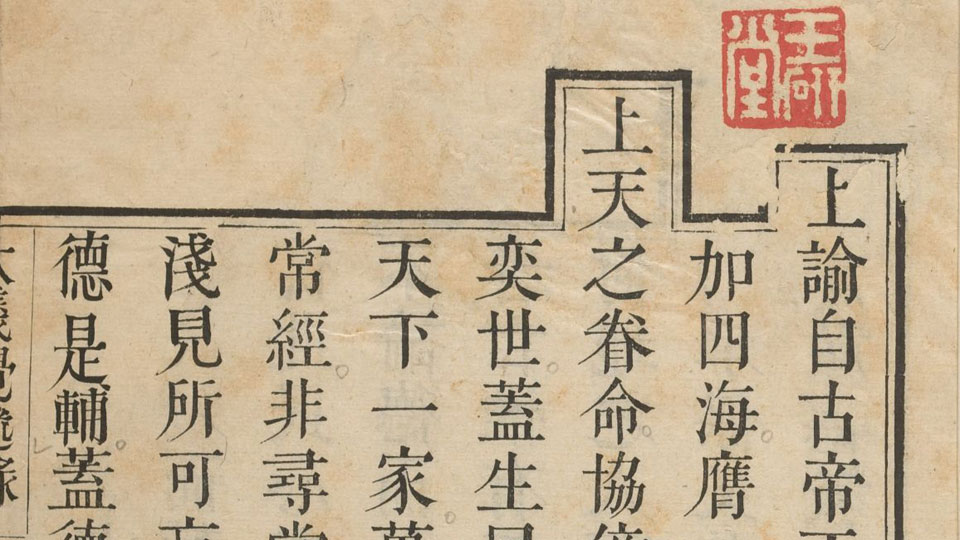 上諭自古帝王
加四海膺
上天之眷命協
奕世蓋生
天下一家萬
常經非尋常
淺見所可
德是輔蓋德
大義覺迷錄